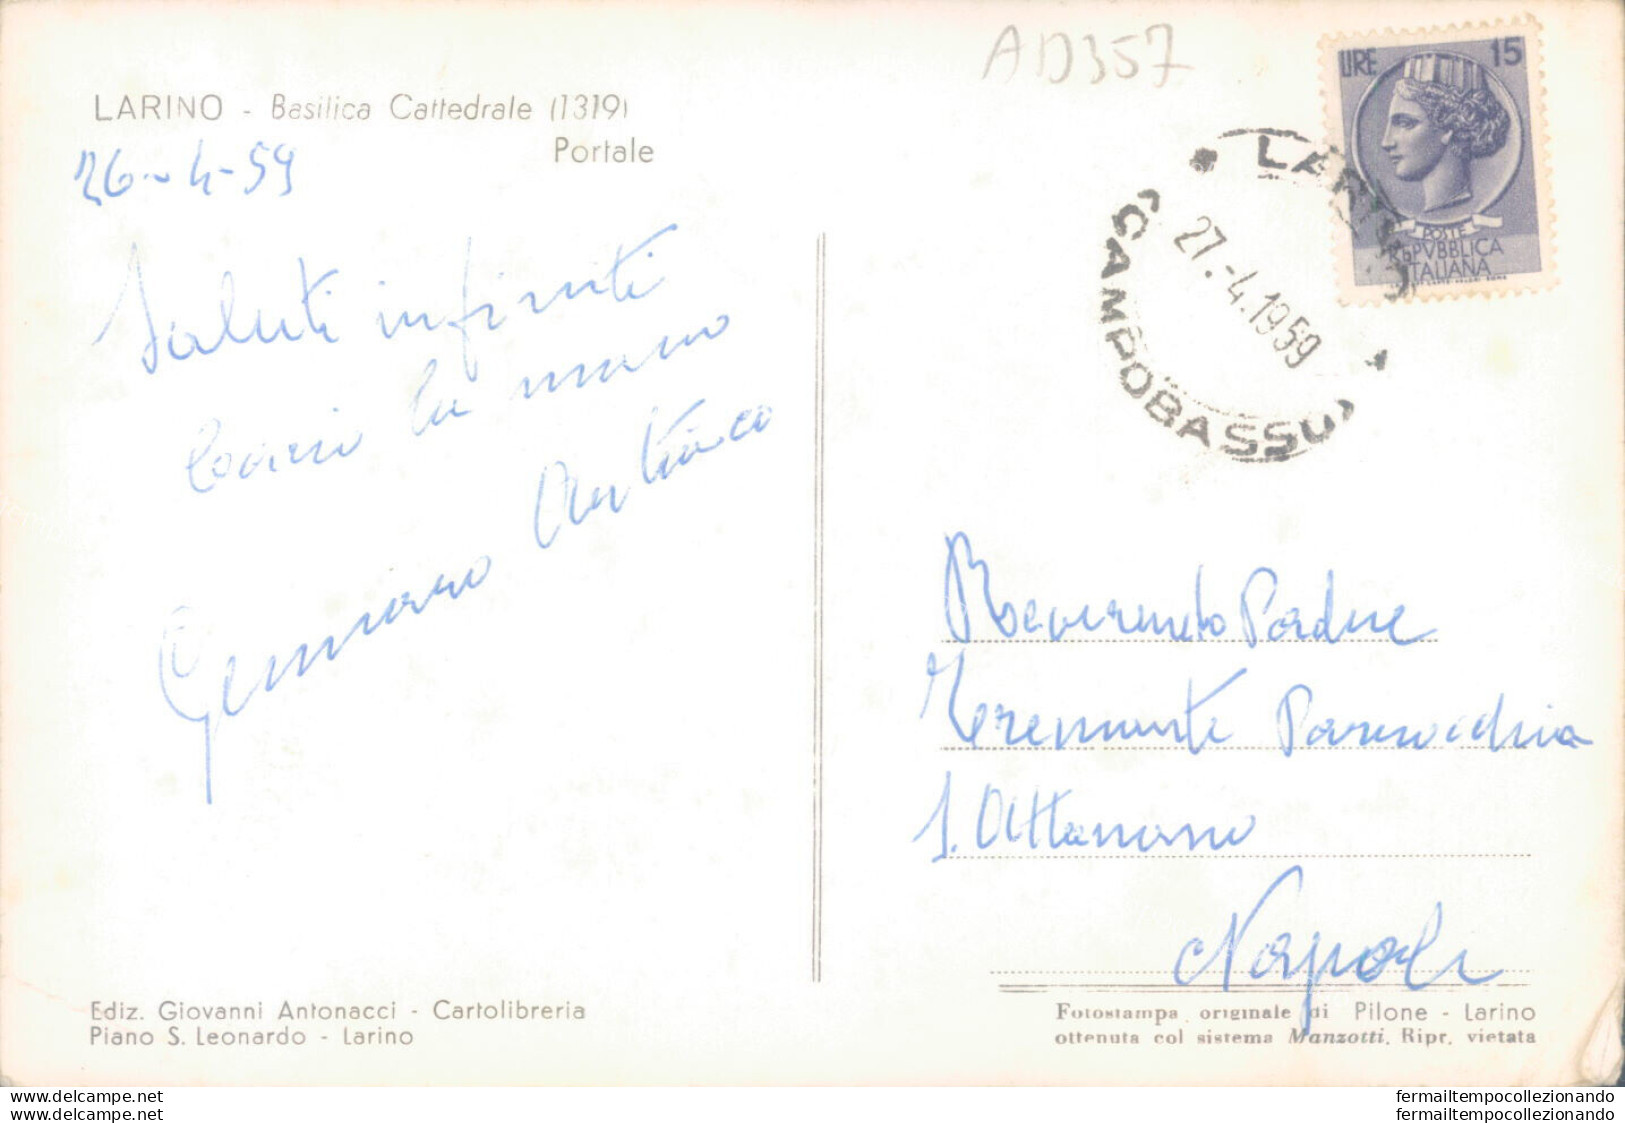 AD357
LIRE 15
POSTE
REPVBBLICA
ITALIANA
LARINO
(CAMPOBASSO)
27.-4.1959
LARINO - Basilica Cattedrale (1319)
Portale
26-4-59
Saluti infiniti
bacio la mano
Gennaro
Reverendo Padre
Parrocchia
S. Attanasio
Napoli
Ediz. Giovanni Antonacci - Cartolibreria
Piano S. Leonardo - Larino
Fotostampa originale di Pilone - Larino
ottenuta col sistema Manzotti. Ripr. vietata
fermailtempocollezionando
fermailtempocollezionando
www.delcampe.net
www.delcampe.net